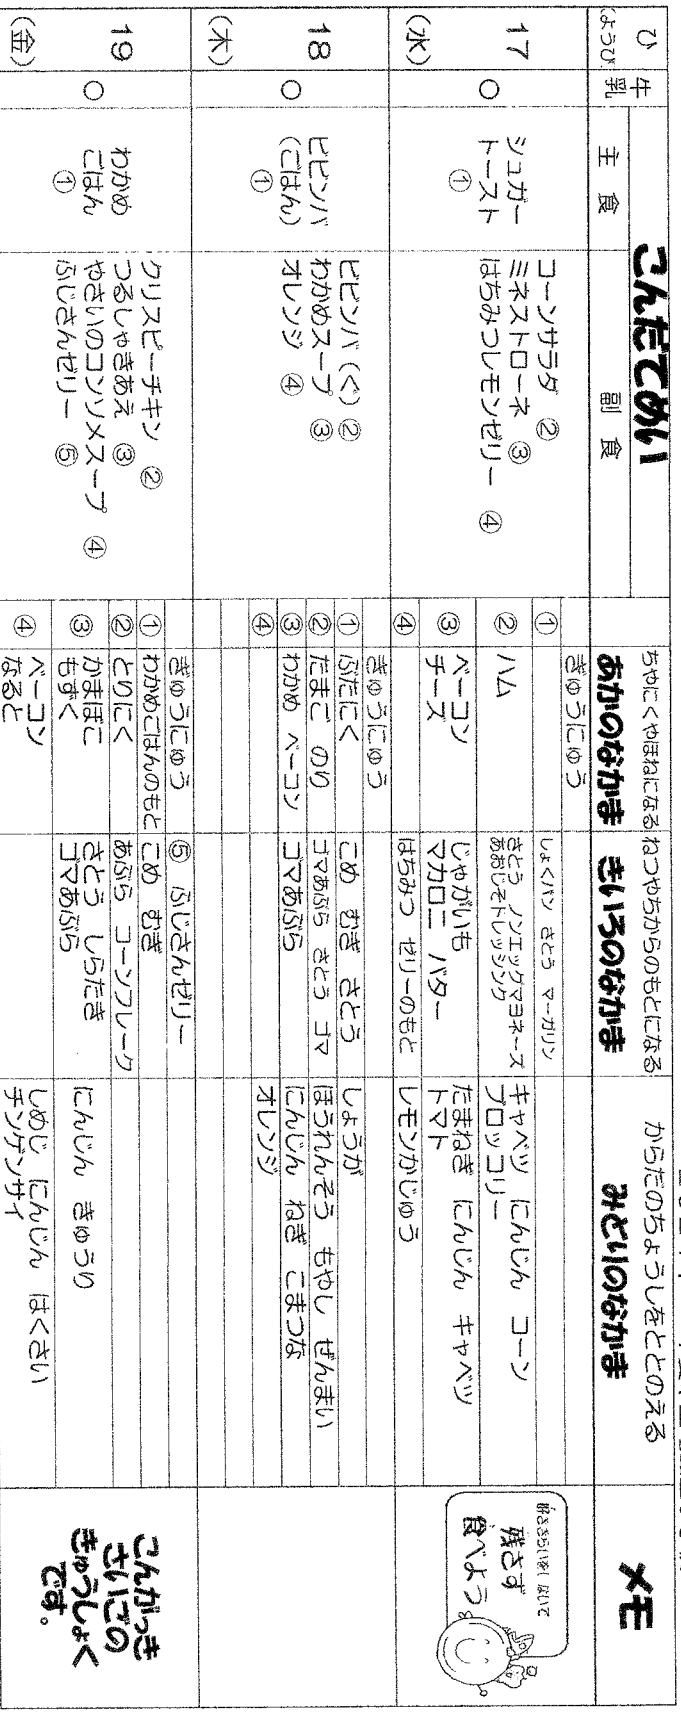 ひ
(ようび)
牛乳
こんだてめい
主 食
副 食
ちやにくやほねになる
あかのなかま
ねつやちからのもとになる
きいろのなかま
からだのちょうしをととのえる
みどりのなかま
メモ
17
(水)
○
シュガー
トースト
①
コーンサラダ ②
ミネストローネ ③
はちみつレモンゼリー ④
ぎゅうにゅう
① しょくパン さとう マーガリン
② ハム
さとう ノンエッグマヨネーズ
あおじそドレッシング
キャベツ にんじん コーン
ブロッコリー
③ ベーコン
チーズ
じゃがいも
マカロニ バター
たまねぎ にんじん キャベツ
トマト
④ はちみつ ゼリーのもと
レモンかじゅう
好ききらいをしないで
残さず
食べよう
18
(木)
○
ビビンバ
(ごはん)
①
ビビンバ(ぐ) ②
わかめスープ ③
オレンジ ④
ぎゅうにゅう
① ぶたにく
こめ むぎ さとう
しょうが
② たまご のり
ゴマあぶら さとう ゴマ
ほうれんそう もやし ぜんまい
③ わかめ ベーコン
ゴマあぶら
にんじん ねぎ こまつな
④ オレンジ
19
(金)
○
わかめ
ごはん
①
クリスピーチキン ②
つるしゃきあえ ③
やさいのコンソメスープ ④
ふじさんゼリー ⑤
ぎゅうにゅう
⑤ ふじさんゼリー
① わかめごはんのもと
こめ むぎ
② とりにく
あぶら コーンフレーク
③ かまぼこ
もずく
さとう しらたき
ゴマあぶら
にんじん きゅうり
④ ベーコン
なると
しめじ にんじん はくさい
チンゲンサイ
こんがっき
さいごの
きゅうしょく
です。